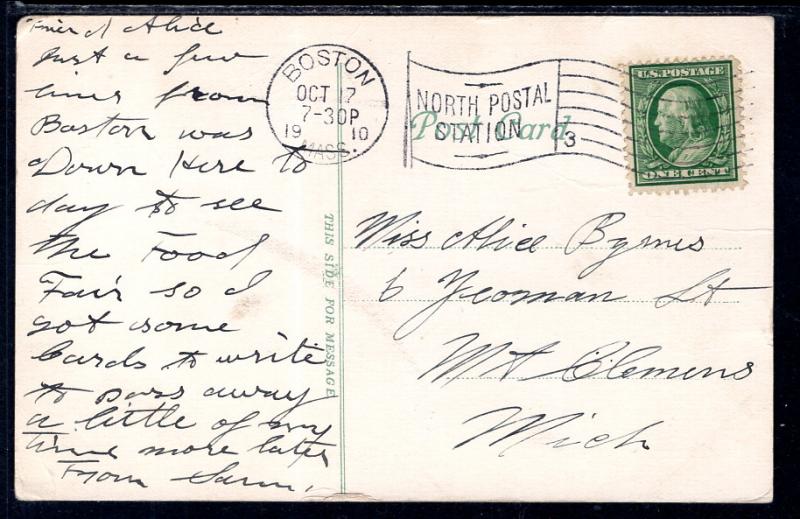 Friend Alice
Just a few
lines from
Boston was
Down Here to
day to see
The Food
Fair so I
got some
Cards to write
to pass away
a little of my
Time more later
From Sam.
BOSTON
OCT 17
7-30P
19 10
MASS.
NORTH POSTAL
STATION
3
Post Card
U.S. POSTAGE
ONE CENT
THIS SIDE FOR MESSAGE
Miss Alice Byrnes
6 Yeoman St
Mt Clemens
Mich